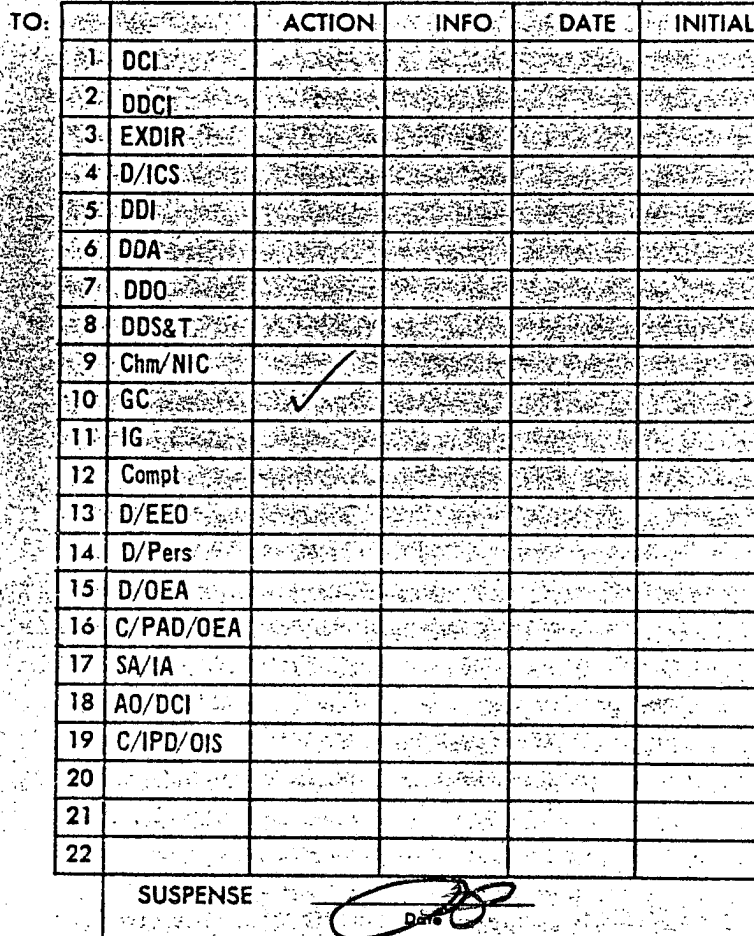 TO: ACTION INFO DATE INITIAL
1 DCI
2 DDCI
3 EXDIR
4 D/ICS
5 DDI
6 DDA
7 DDO
8 DDS&T
9 Chm/NIC
10 GC ✓
11 IG
12 Compt
13 D/EEO
14 D/Pers
15 D/OEA
16 C/PAD/OEA
17 SA/IA
18 AO/DCI
19 C/IPD/OIS
20
21
22
SUSPENSE
Date